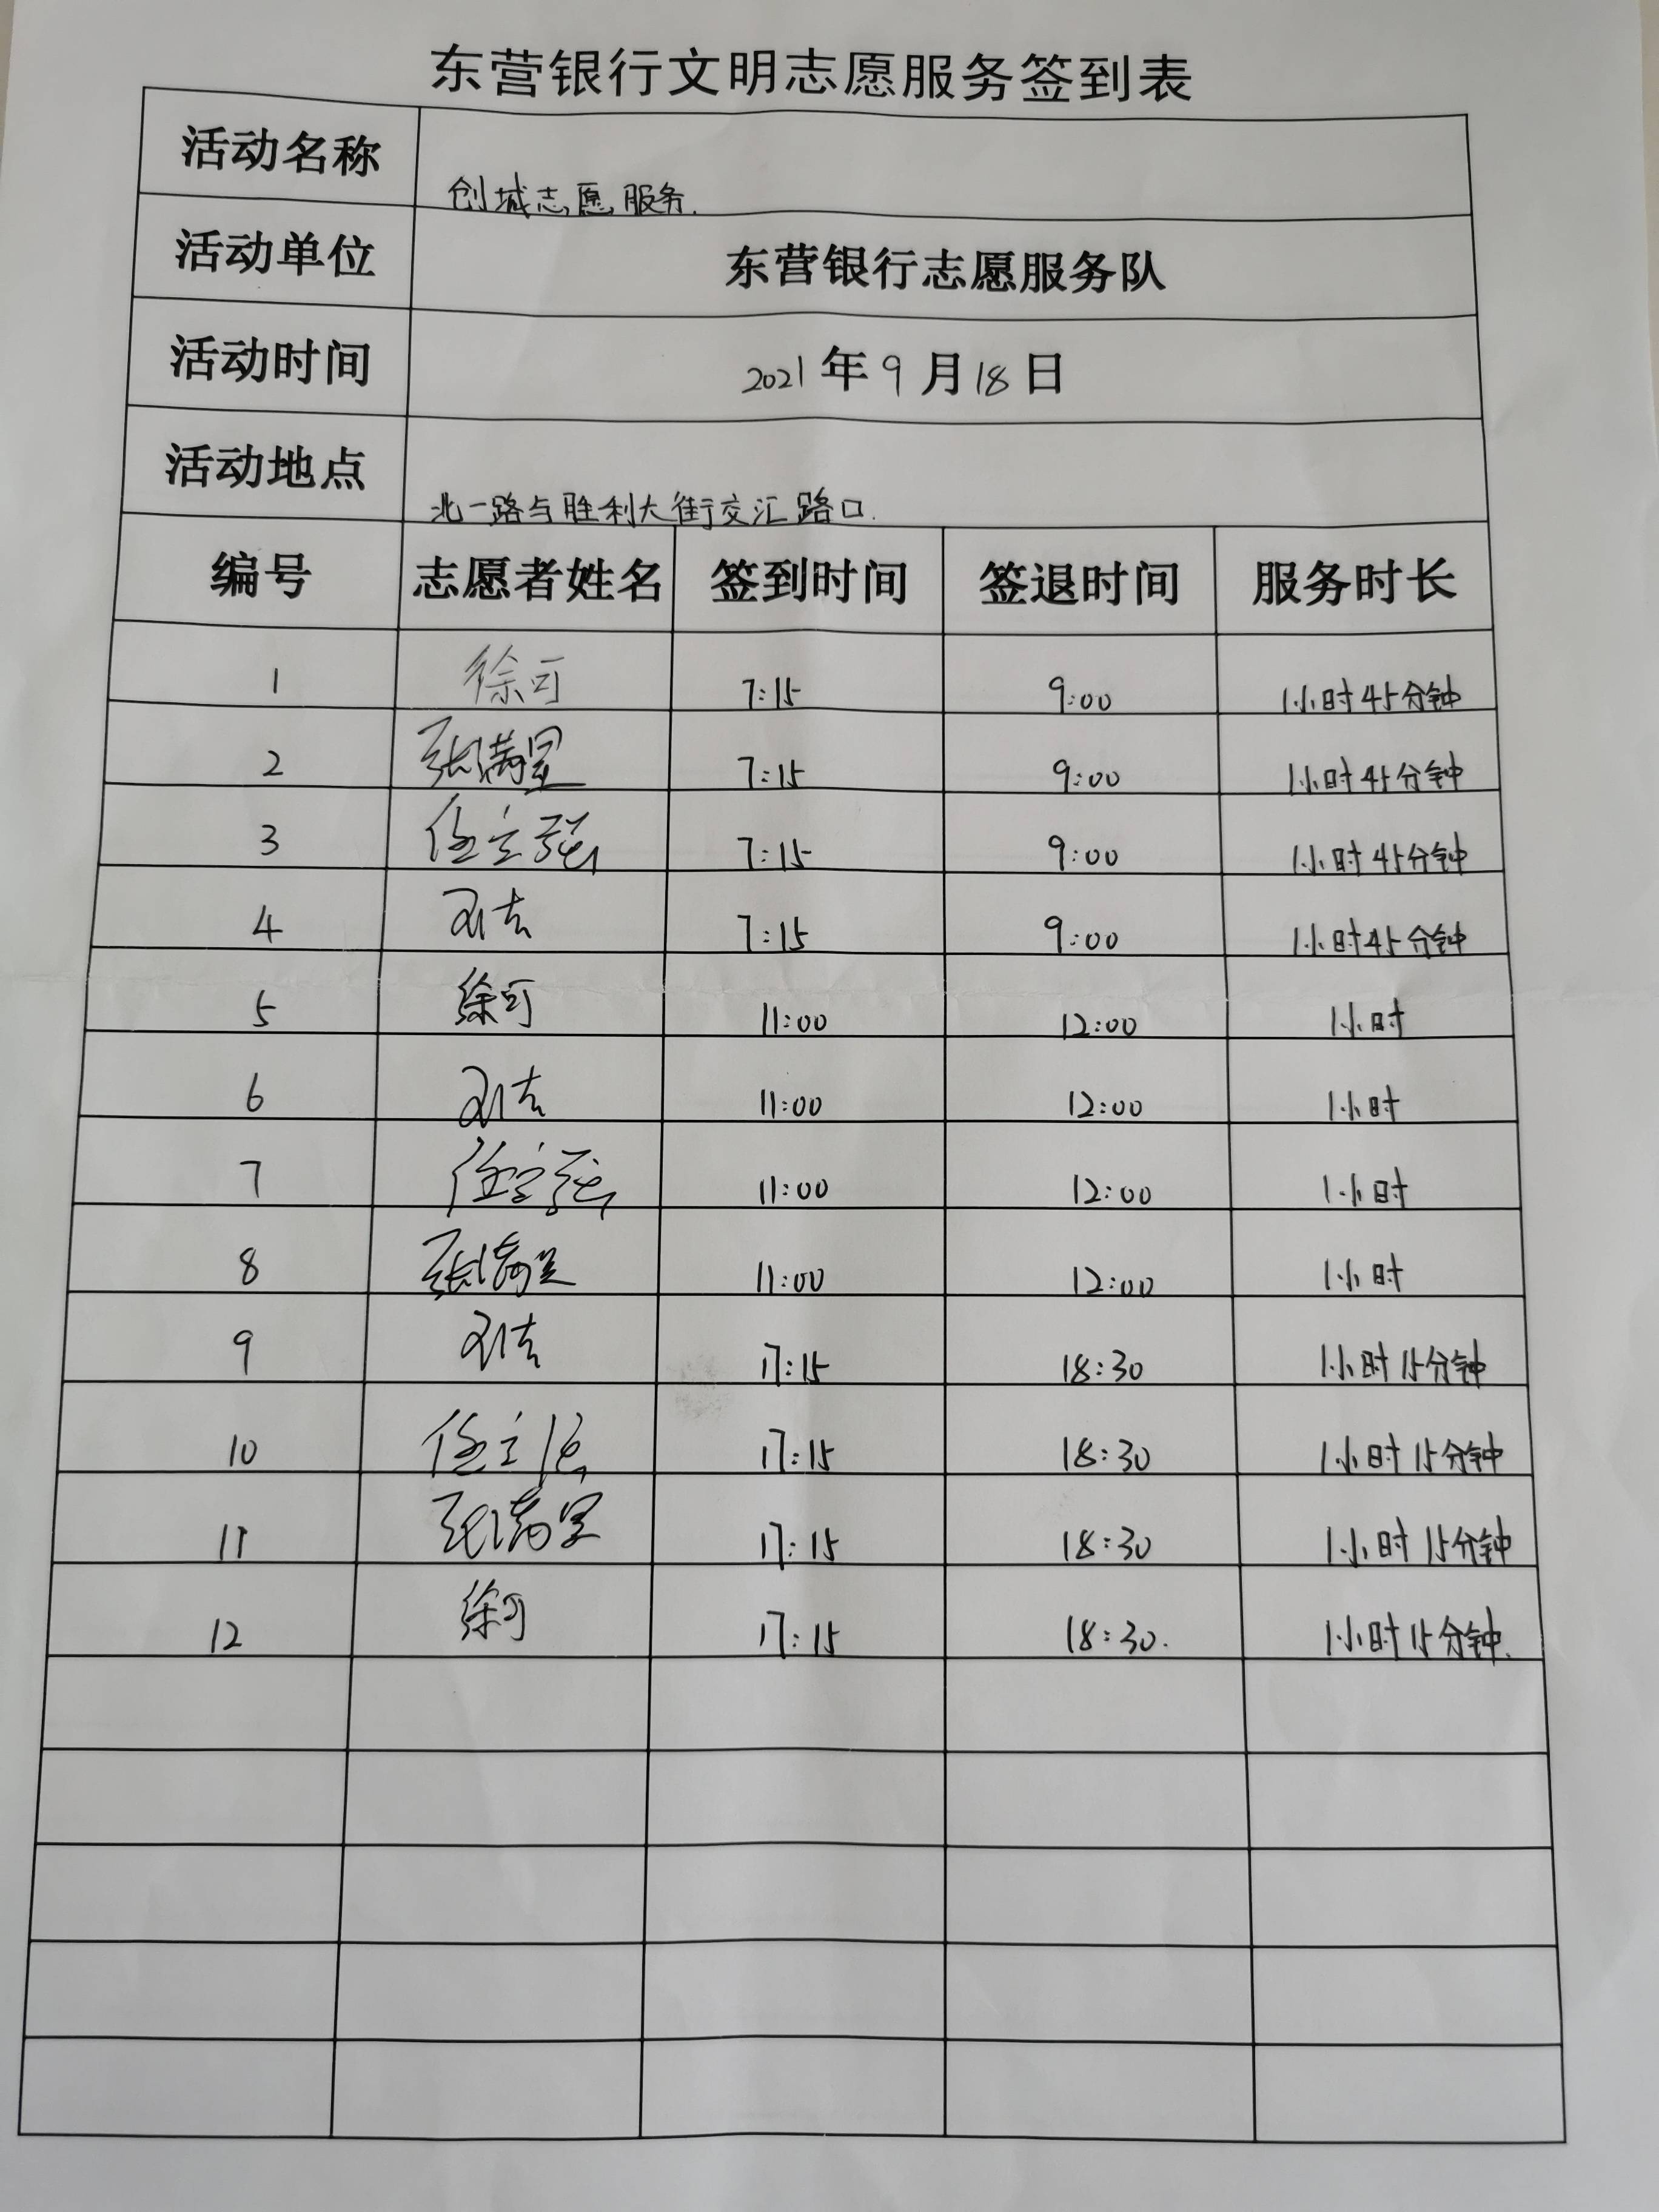 东营银行文明志愿服务签到表
活动名称 创城志愿服务.
活动单位 东营银行志愿服务队
活动时间 2021年9月18日
活动地点 北一路与胜利大街交汇路口.
编号 志愿者姓名 签到时间 签退时间 服务时长
1 徐可 7:15 9:00 1小时45分钟
2 张满 7:15 9:00 1小时45分钟
3 任立强 7:15 9:00 1小时45分钟
4 刘吉 7:15 9:00 1小时45分钟
5 徐可 11:00 12:00 1小时
6 刘吉 11:00 12:00 1小时
7 任立强 11:00 12:00 1小时
8 张满 11:00 12:00 1小时
9 刘吉 17:15 18:30 1小时15分钟
10 任立强 17:15 18:30 1小时15分钟
11 张满 17:15 18:30 1小时15分钟
12 徐可 17:15 18:30. 1小时15分钟.